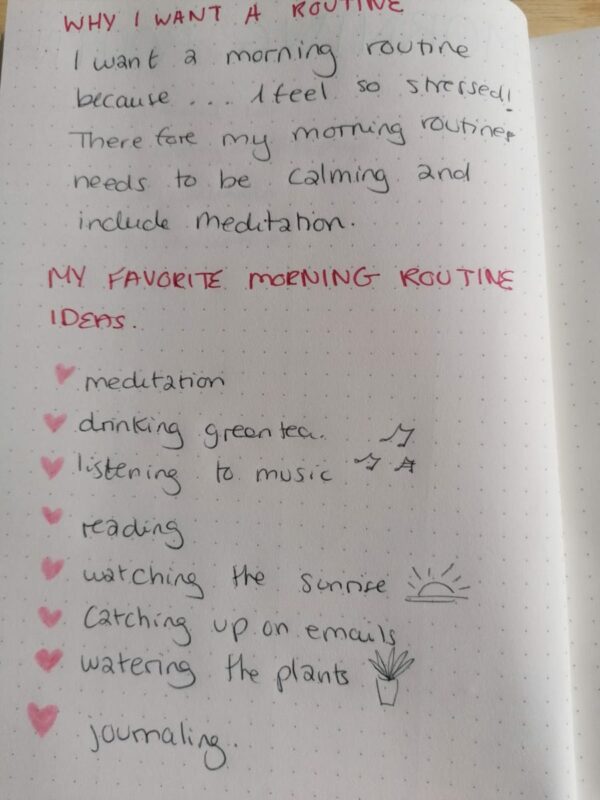 WHY I WANT A ROUTINE
I want a morning routine
because ... I feel so stressed!
There fore my morning routine
needs to be calming and
include meditation.
MY FAVORITE MORNING ROUTINE
IDEAS.
meditation
drinking green tea.
listening to music
reading
watching the sunrise
Catching up on emails
watering the plants
journaling.